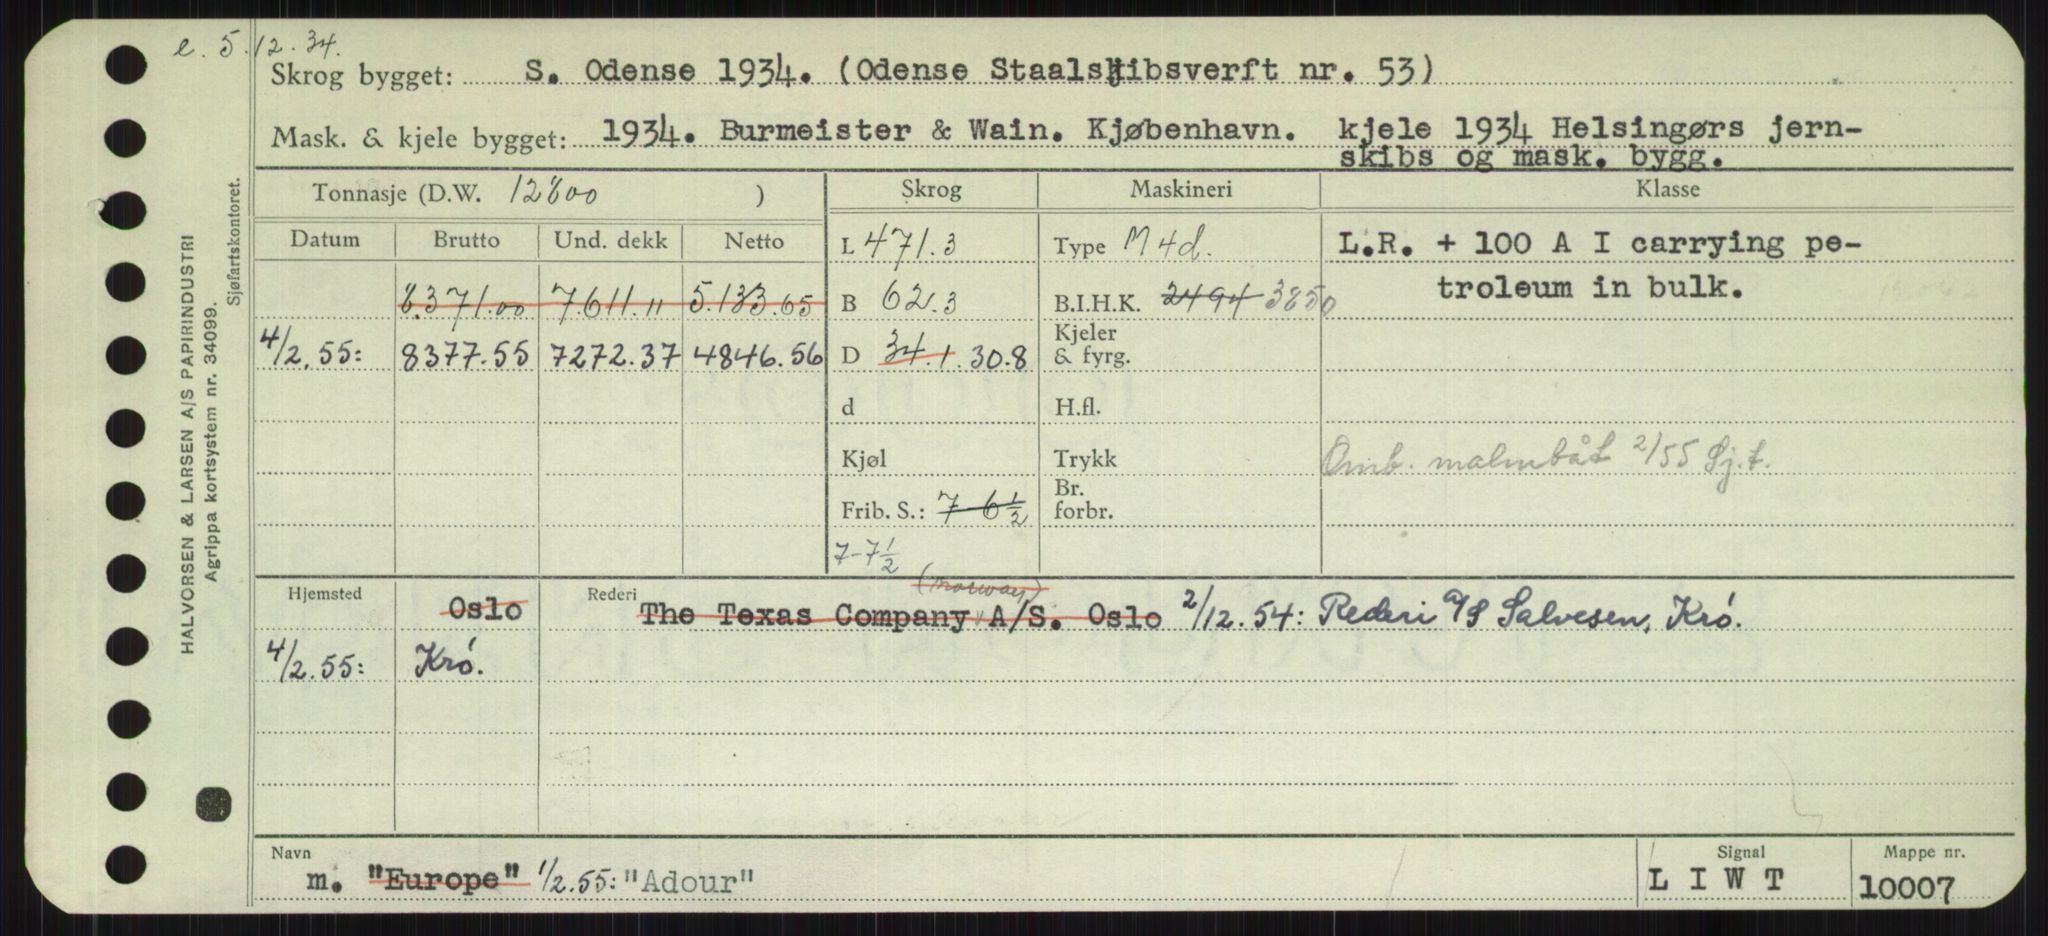 e. 5.12.34.
Skrog bygget: S. Odense 1934. (Odense Staalskibsverft nr. 53)
Mask. & kjele bygget: 1934. Burmeister & Wain. Kjøbenhavn. kjele 1934 Helsingørs jern-
skibs og mask. bygg.
Tonnasje (D.W. 12800 ) Skrog Maskineri Klasse
Datum Brutto Und. dekk Netto L 471.3 Type M 4d. L.R. + 100 A I carrying pe-
8.371.00 7.611.11 5.133.65 B 62.3 B.I.H.K. 2494 3850 troleum in bulk.
4/2.55: 8377.55 7272.37 4846.56 D 34.1. 30.8 Kjeler & fyrg.
d H.fl.
Kjøl Trykk Omb. malmbåt 2/55 Sj.t.
Frib. S.: 7-6½ Br. forbr.
7-7½
(Norway)
Hjemsted Oslo Rederi The Texas Company A/S. Oslo 2/12.54: Rederi A/S Salvesen, Krø.
4/2.55: Krø.
Navn Signal Mappe nr.
m. "Europe" 1/2.55: "Adour" L I W T 10007
HALVORSEN & LARSEN A/S PAPIRINDUSTRI
Agrippa kortsystem nr. 34099.
Sjøfartskontoret.